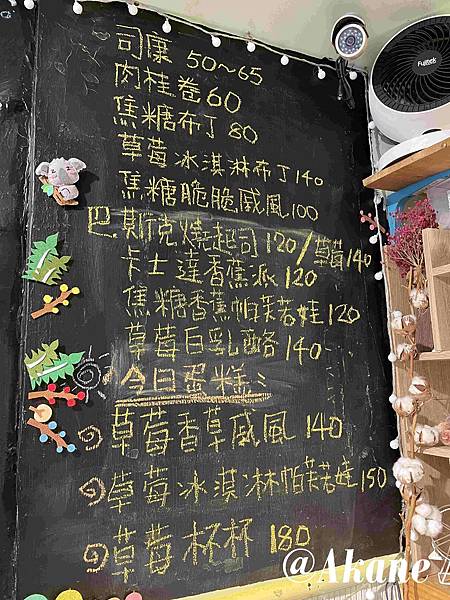 司康 50~65
肉桂卷60
焦糖布丁80
草莓冰淇淋布丁140
焦糖脆脆戚風100
巴斯克燒起司120/草莓140
卡士達香蕉派120
焦糖香蕉帕芙若娃120
草莓白乳酪140
今日蛋糕:
草莓香草戚風 140
草莓冰淇淋帕芙若娃150
草莓杯杯 180
Fujitek
@Akane